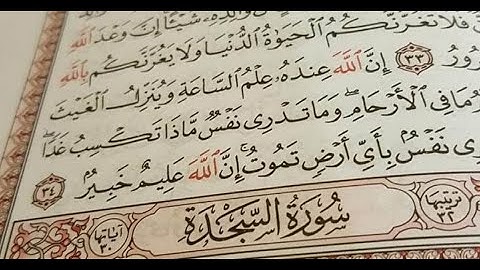 وَالِدِهِۦ شَيْـًٔا إِنَّ وَعْدَ ٱللَّهِ
فَلَا تَغُرَّنَّكُمُ ٱلْحَيَوٰةُ ٱلدُّنْيَا وَلَا يَغُرَّنَّكُم بِٱللَّهِ
رُورُ ٣٣ إِنَّ ٱللَّهَ عِندَهُۥ عِلْمُ ٱلسَّاعَةِ وَيُنَزِّلُ ٱلْغَيْثَ
مَا فِى ٱلْأَرْحَامِ وَمَا تَدْرِى نَفْسٌ مَّاذَا تَكْسِبُ غَدًا
رِى نَفْسٌۢ بِأَىِّ أَرْضٍ تَمُوتُ إِنَّ ٱللَّهَ عَلِيمٌ خَبِيرٌۢ ٣٤
ترتيبها ٣٢ سُورَةُ السَّجْدَةِ آياتها ٣٠